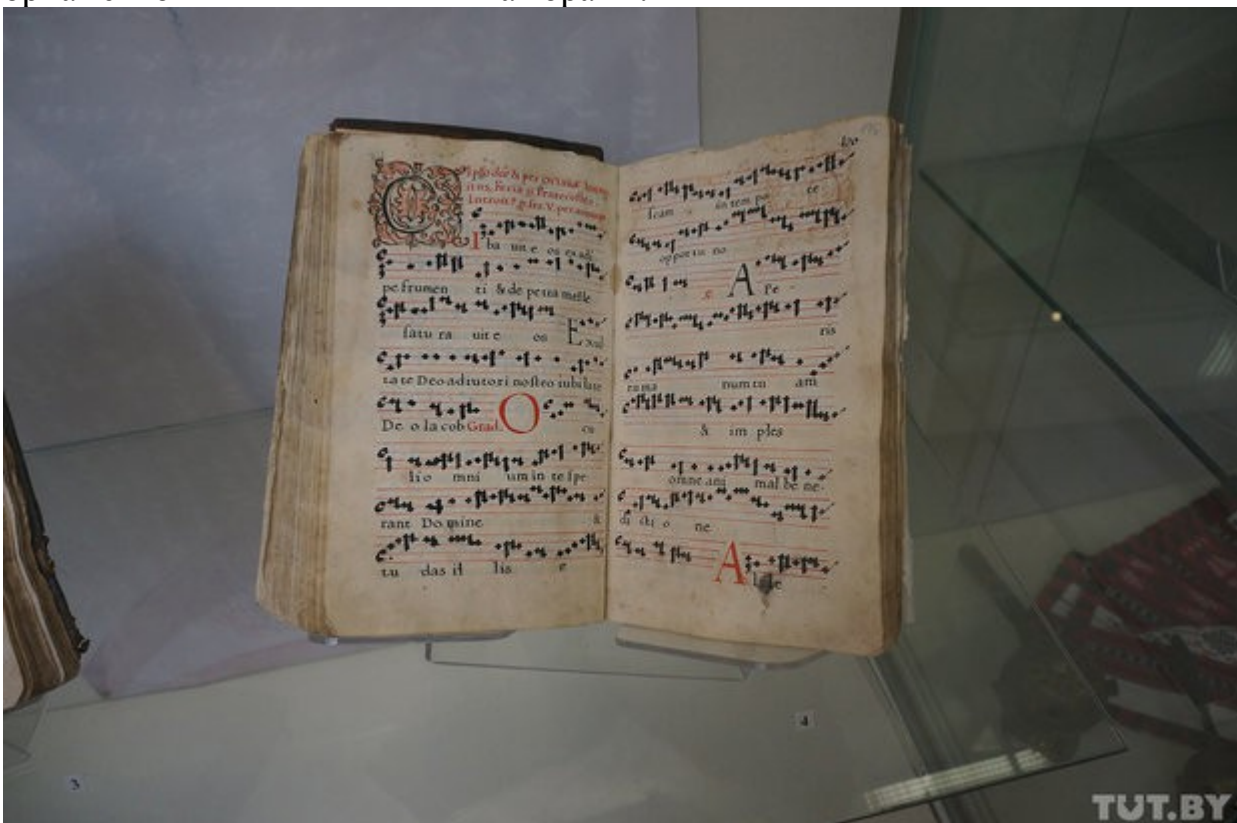 C
Iba uit e os ex adi
pe frumen ti & de petra melle
satu ra uit e os Exul
tate Deo adiutori nostro iubilate
De o Iacob Grad. O cu
li o mni um in te spe
rant Do mine &
tu das il lis e
scam in tem po te
oppor tu no
A Pe
ris
tu ma num tu am
& im ples
omne ani mal be ne
di cti o ne
A l le
3
4
TUT.BY